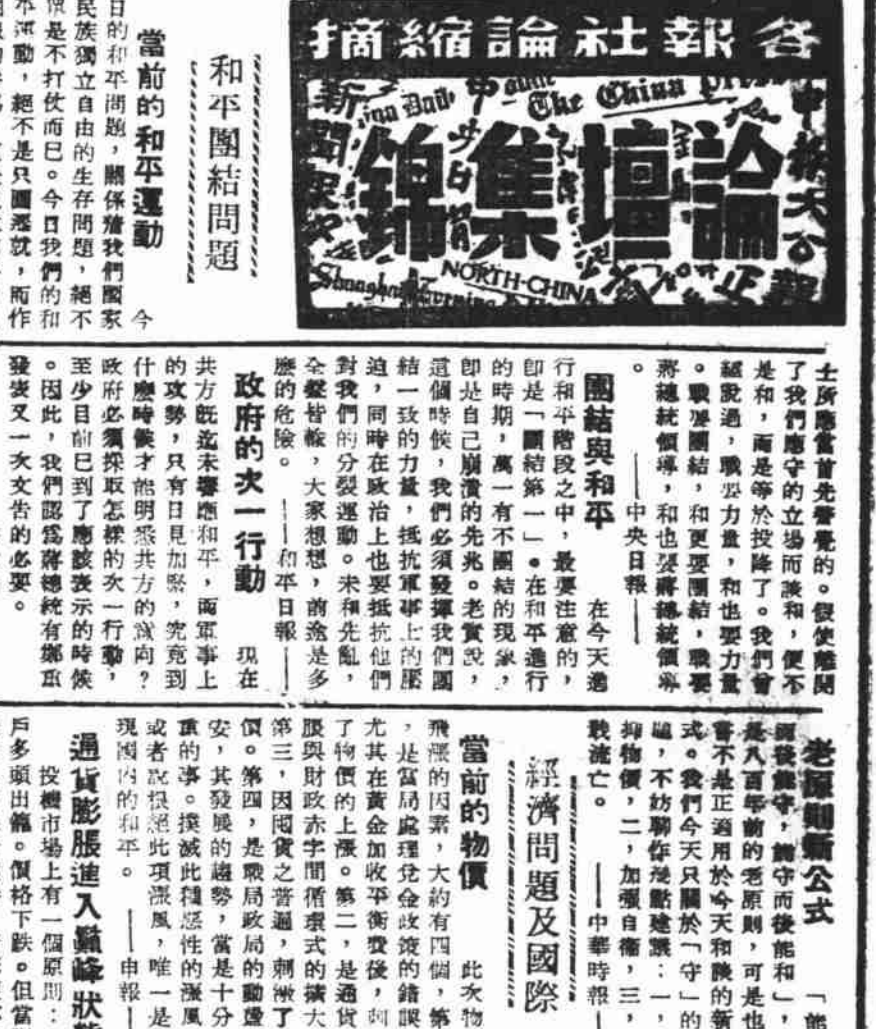 各報社論縮摘
論壇集錦
中格大公報
新聞報
The China Press
NORTH-CHINA
Shanghai Evening
正
和平團結問題
當前的和平運動
今
日的和平問題，關係着我們國家
民族獨立自由的生存問題，絕不
是不打仗而已。今日我們的和
平運動，絕不是只圖遷就，而作
士所應當首先警覺的。假使離開
了我們應守的立場而談和，便不
是和，而是等於投降了。我們曾
經說過，戰要力量，和也要力量
。戰要團結，和更要團結，戰要
蔣總統領導，和也要蔣總統領導
。
——中央日報——
團結與和平
在今天進
行和平階段之中，最要注意的，
卽是「團結第一」。在和平進行
的時期，萬一有不團結的現象，
卽是自己崩潰的先兆。老實說，
這個時候，我們必須發揮我們團
結一致的力量，抵抗軍事上的壓
迫，同時在政治上也要抵抗他們
對我們的分裂運動。未和先亂，
全盤皆輸，大家想想，前途是多
麼的危險。——和平日報——
政府的次一行動
現在
共方既迄未響應和平，而軍事上
的攻勢，只有日見加緊，究竟到
什麼時候才能明悉共方的意向？
政府必須採取怎樣的次一行動，
至少目前已到了應該表示的時候
。因此，我們認爲蔣總統有鄭重
發表又一次文告的必要。
老原則新公式
「能
而後能守，能守而後能和」，
是八百年前的老原則，可是也
嘗不是正適用於今天和談的新
式。我們今天只關於「守」的
，不妨聊作幾點建議：一，
抑物價，二，加強自衞，三，
戢流亡。——中華時報—
經濟問題及國際
當前的物價
此次物
飛漲的因素，大約有四個，第
，是當局處理兌金政策的錯誤
尤其在黃金加收平衡費後，刺
了物價的上漲。第二，是通貨
脹與財政赤字間循環式的擴大
第三，因囤貨之普遍，刺激了
價。第四，是戰局政局的動盪
安，其發展的趨勢，當是十分
重的事。撲滅此種惡性的漲風
或者說根絕此項漲風，唯一是
現國內的和平。——申報—
通貨膨脹進入巔峰狀
投機市場上有一個原則：
戶多頭出籠。價格下跌。但當